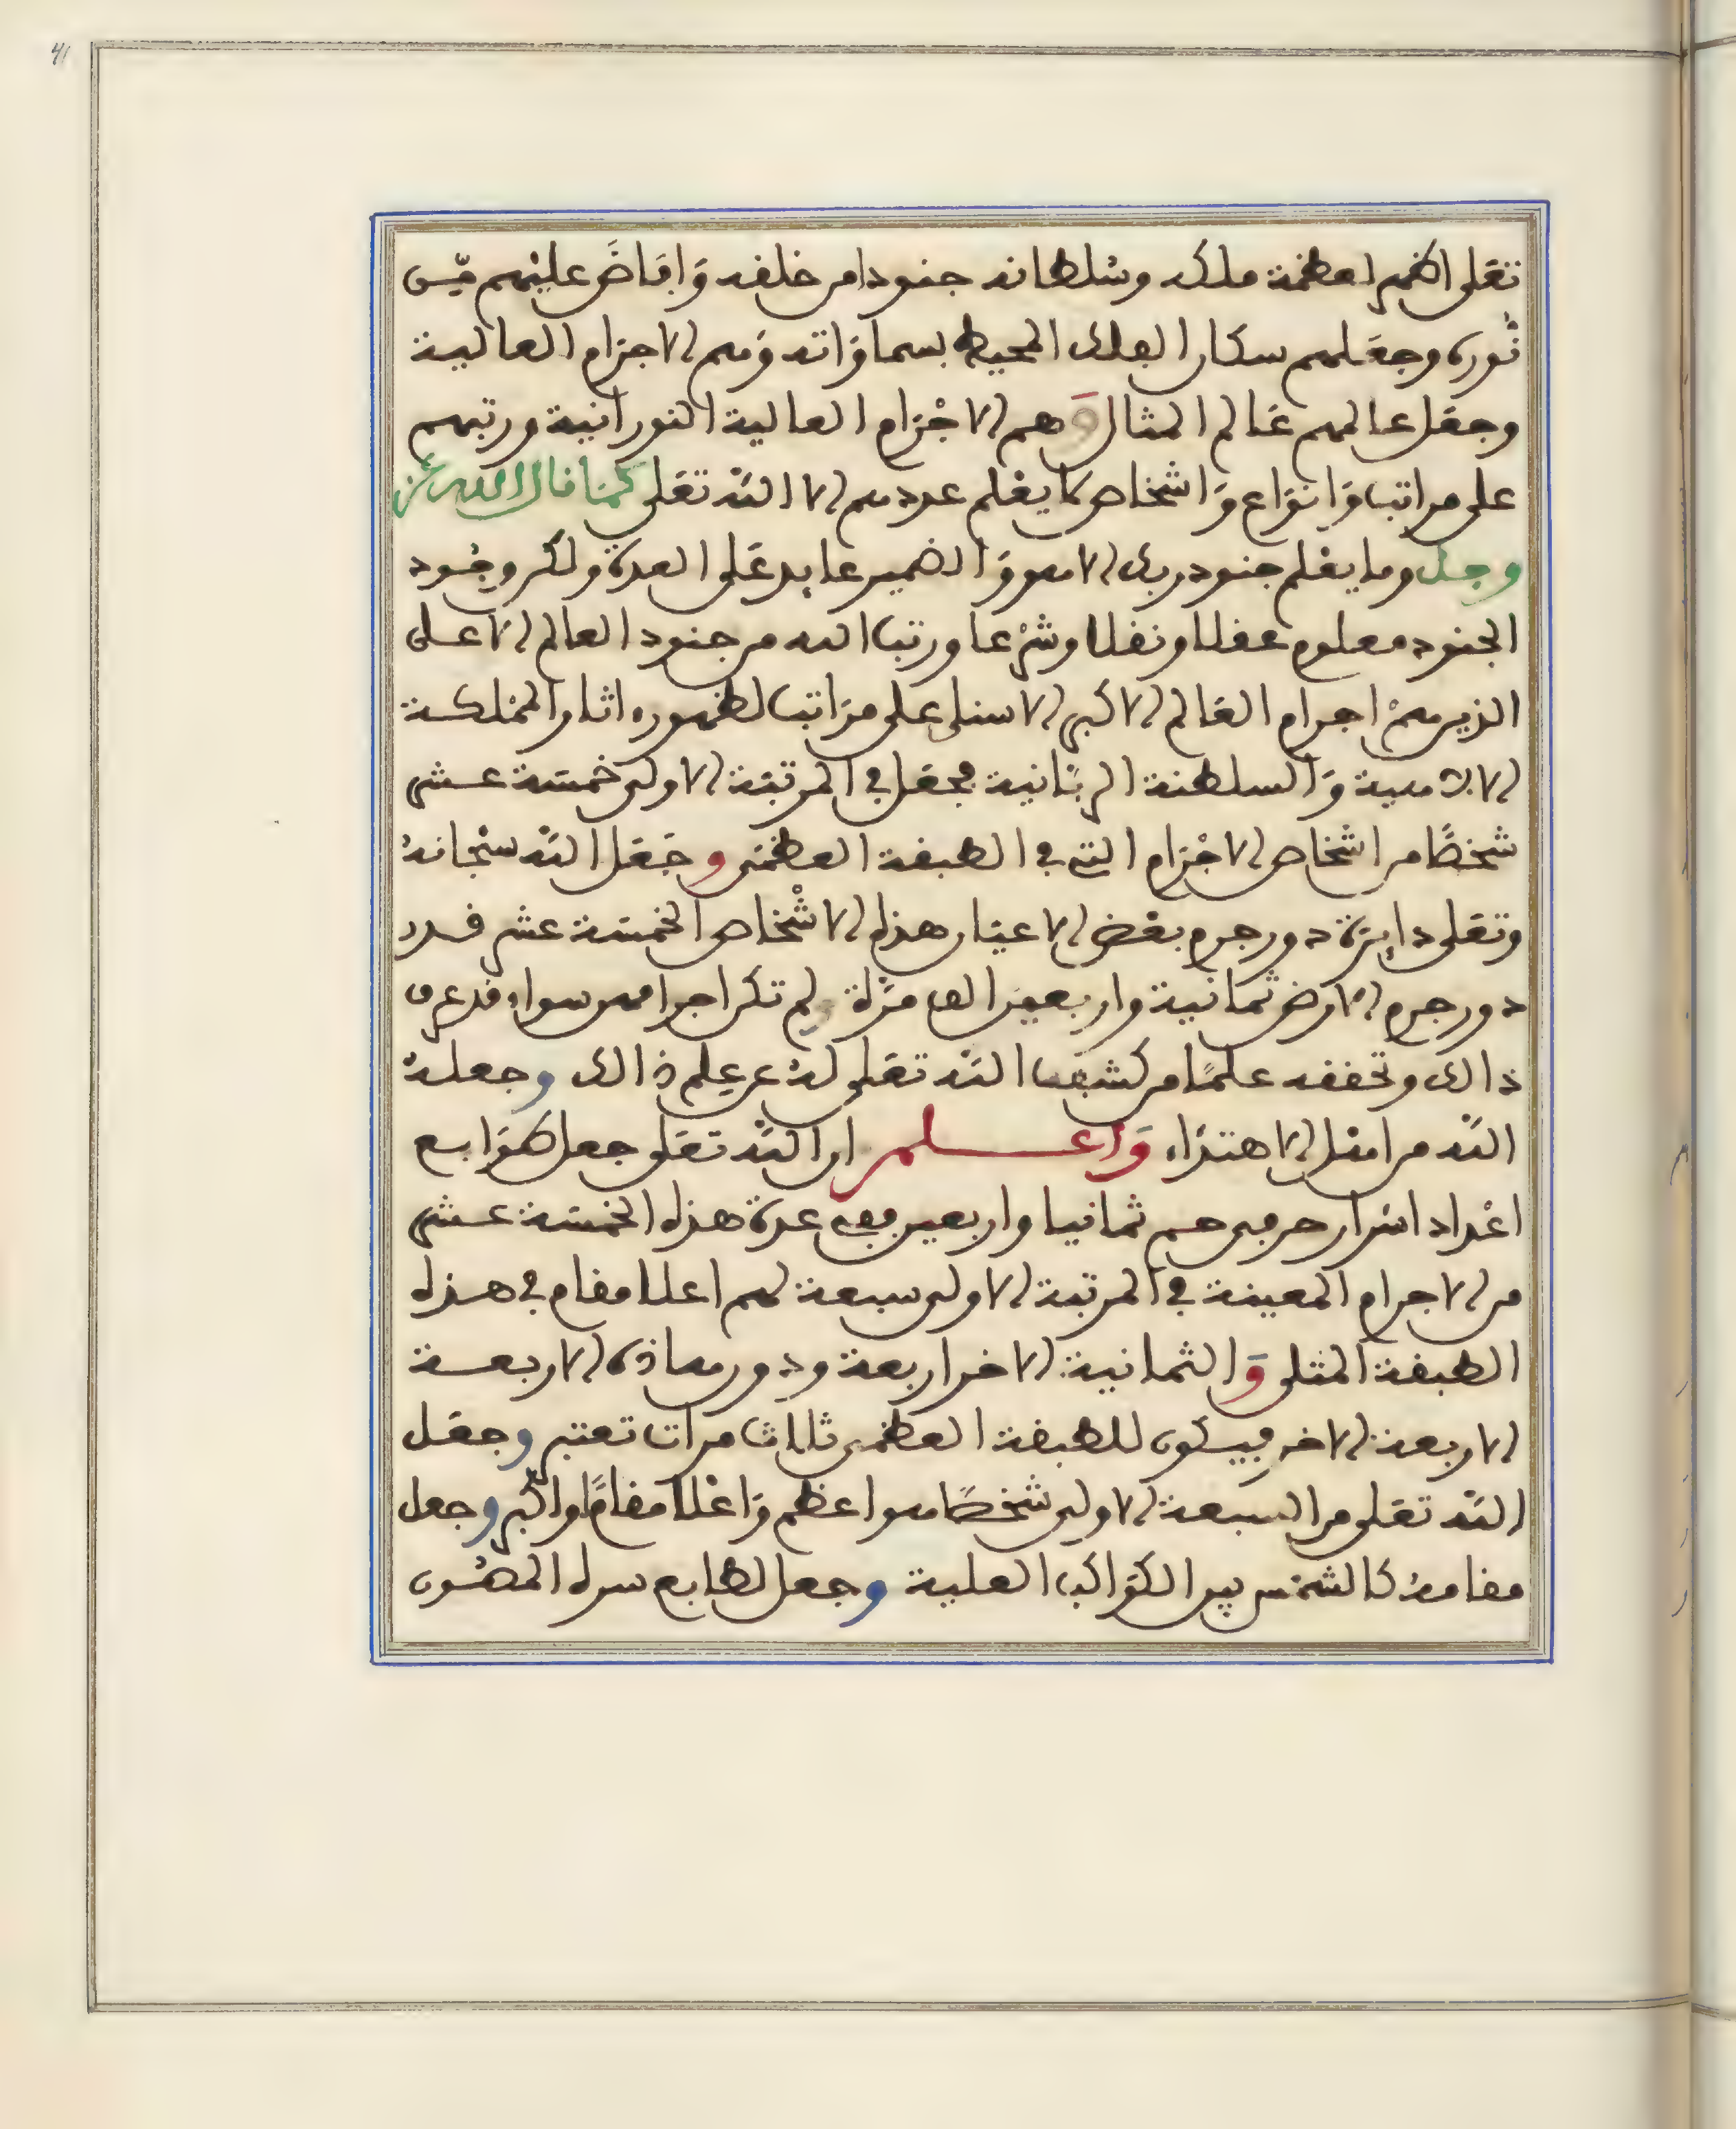 41
تعلى اظهر لعظمة ملكه وسلطانه جنودا من خلفه وَافاضَ عليهم مِن
نُوره وجعَلهم سكان الفلك المحيط بسماوَاته وَهم الاجرام العالية
وجعَل عالمهم عَالم المثال وَهم الاجْرَام العالية النورانية ورتبهم
على مراتب وَانوَاع وَاشخاص لا يعْلم عددهم الا اللّه تعَلى كمَا قال الله عز
وجل وما يعْلم جنود ربك الا هو وَالضمير عايد عَلى العدة ولكن وجُود
الجنود معلوم عقلا ونقلا وشرْعا ورتب الله من جنود العالم الاعلى
الذين همْ اجرام العَالم الاكبر الاسنى على مرَاتب لظهوره اثار المملكة
الالاهية وَالسلطنة الربَّانية فجعَل في المرتبَة الاولى خمسَة عشر
شخصًا من اشخاص الاجْرَام التي في الطبقة العظمَى وجَعَل اللّه سبْحانهُ
وتعَلى دايرَة دور جرم بعْض الاعيَان هذه الاشْخاص الخمسَة عشر قدر
دور جرم الارض ثمانية واربعين الف مرَّة ولم تكن اجرامهم سواء قد عرف
ذالك وتحققه علمًا من كشف اللّه تعَلى لهُ عن علم ذالك وجعلهُ
اللّه من اهل الاهتدَاء وَاعلم ان اللّه تعَلى جعل طوَابع
اعْداد اسْرار حرفى حم ثمانيا واربعين ففى عدة هذه الخمسَة عشر
من الاجرام المعينة في المرتبَة الاولى سبعة لهم اعلا مقام في هذه
الطبقة المثلى وَالثمانية الاخر اربعة ودور معاذة الاربعة
الاربعة الاخر فيكون للطبقة العظمى ثلاث مرات تعتبر وجعَل
اللّه تعَلى من السبعة الاولى شخصًا هو اعظم وَاعْلا مقامًا واكبر وجعل
مقامهُ كالشمْس بين الكوَاكب العلية وجعل لطابع سره المصُون